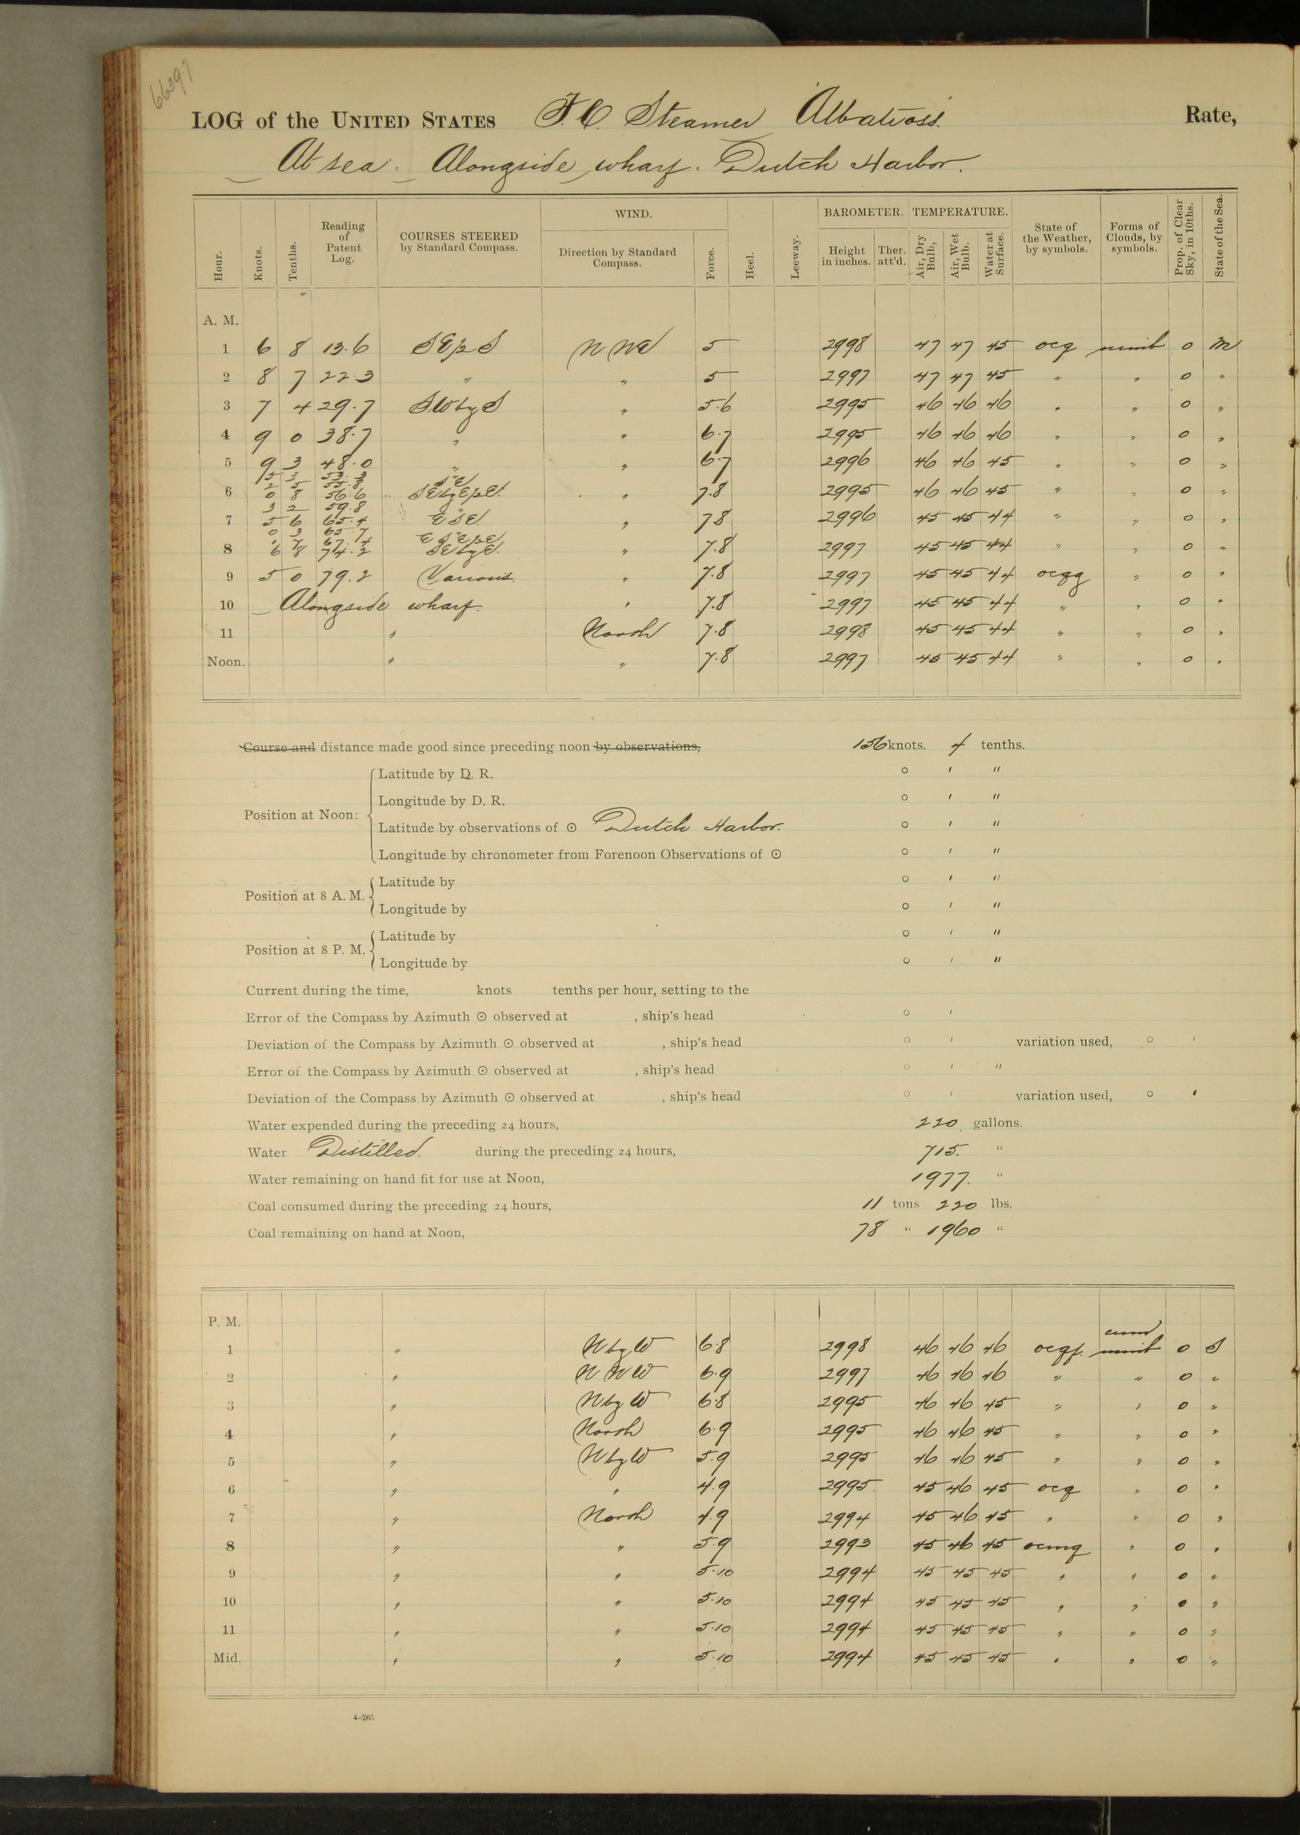 LOG of the UNITED STATES F. C. Steamer Albatross. Rate,
At sea. Alongside wharf. Dutch Harbor.
Hour. Knots. Tenths. Reading of Patent Log. COURSES STEERED by Standard Compass. WIND. Direction by Standard Compass. Force. Heel. Leeway. BAROMETER. Height in inches. Ther. att'd. TEMPERATURE. Air, Dry Bulb. Air, Wet Bulb. Water at Surface. State of the Weather, by symbols. Forms of Clouds, by symbols. Prop. of Clear Sky, in 10ths. State of the Sea.
A. M.
1 6 8 13.6 NNW 5 2998 47 47 45 ocq nimb 0 M
2 8 7 22.3 " " 5 2997 47 47 45 " " 0 "
3 7 4 29.7 SWbyS " 5.6 2995 46 46 46 " " 0 "
4 9 0 38.7 " " 6.7 2995 46 46 46 " " 0 "
5 9 3 48.0 " " 6.7 2996 46 46 45 " " 0 "
5 3 53.3 SE
2 5 55.8
6 0 8 56.6 " 7.8 2995 46 46 45 " " 0 "
3 2 59.8
7 5 6 65.4 ESE " 78 2996 45 45 44 " " 0 "
0 3 65.7
1 7 67.4
8 6 8 74.2 SEbyE " 7.8 2997 45 45 44 " " 0 "
9 5 0 79.2 Various " 7.8 2997 45 45 44 ocqg " 0 "
10 Alongside wharf. " 7.8 2997 45 45 44 " " 0 "
11 " North 7.8 2998 45 45 44 " " 0 "
Noon. " " 7.8 2997 45 45 44 " " 0 "
Course and distance made good since preceding noon by observations, 156 knots. 4 tenths.
Position at Noon:
Latitude by D. R. ° ′ ″
Longitude by D. R. ° ′ ″
Latitude by observations of ☉ Dutch Harbor. ° ′ ″
Longitude by chronometer from Forenoon Observations of ☉ ° ′ ″
Position at 8 A. M.
Latitude by ° ′ ″
Longitude by ° ′ ″
Position at 8 P. M.
Latitude by ° ′ ″
Longitude by ° ′ ″
Current during the time, knots tenths per hour, setting to the
Error of the Compass by Azimuth ☉ observed at , ship's head ° ′
Deviation of the Compass by Azimuth ☉ observed at , ship's head ° ′ variation used, ° ′
Error of the Compass by Azimuth ☉ observed at , ship's head ° ′ ″
Deviation of the Compass by Azimuth ☉ observed at , ship's head ° ′ variation used, ° ′
Water expended during the preceding 24 hours, 220 gallons.
Water Distilled. during the preceding 24 hours, 715. "
Water remaining on hand fit for use at Noon, 1977. "
Coal consumed during the preceding 24 hours, 11 tons 220 lbs.
Coal remaining on hand at Noon, 78 " 1960 "
P. M.
1 " NbyW 6.8 2998 46 46 46 nimb 0 S
2 " NNW 6.9 2997 46 46 46 " " 0 "
3 " NbyW 6.8 2995 46 46 45 " " 0 "
4 " North 6.9 2995 46 46 45 " " 0 "
5 " NbyW 5.9 2995 46 46 45 " " 0 "
6 " " 4.9 2995 45 46 45 ocq " 0 "
7 " North 4.9 2994 45 46 45 " " 0 "
8 " " 5.9 2993 45 46 45 ocmq " 0 "
9 " " 5.10 2994 45 45 45 " " 0 "
10 " " 5.10 2994 45 45 45 " " 0 "
11 " " 5.10 2994 45 45 45 " " 0 "
Mid. " " 5.10 2994 45 45 45 " " 0 "
4–265